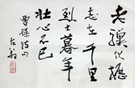 老骥伏枥
志在千里
烈士暮年
壮心不已
曹操诗句